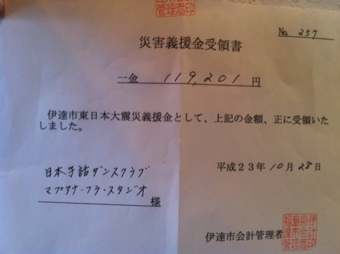 No 237
災害義援金受領書
一金 119,201 円
伊達市東日本大震災義援金として、上記の金額、正に受領いた
しました。
平成23年10月28日
日本手話ダンスクラブ
マプアナ・フラ・スタジオ
様
伊達市会計管理者